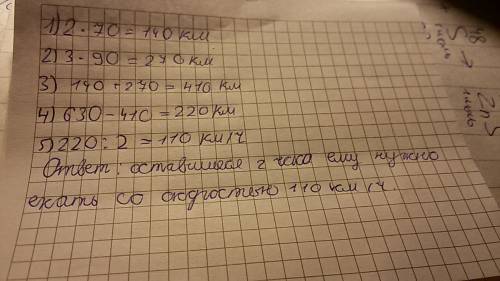 1) 2 · 70 = 140 км
2) 3 · 90 = 270 км
3) 140 + 270 = 410 км
4) 630 - 410 = 220 км
5) 220 : 2 = 110 км/ч
Ответ: оставшиеся 2 часа ему нужно
ехать со скоростью 110 км/ч
ZnS